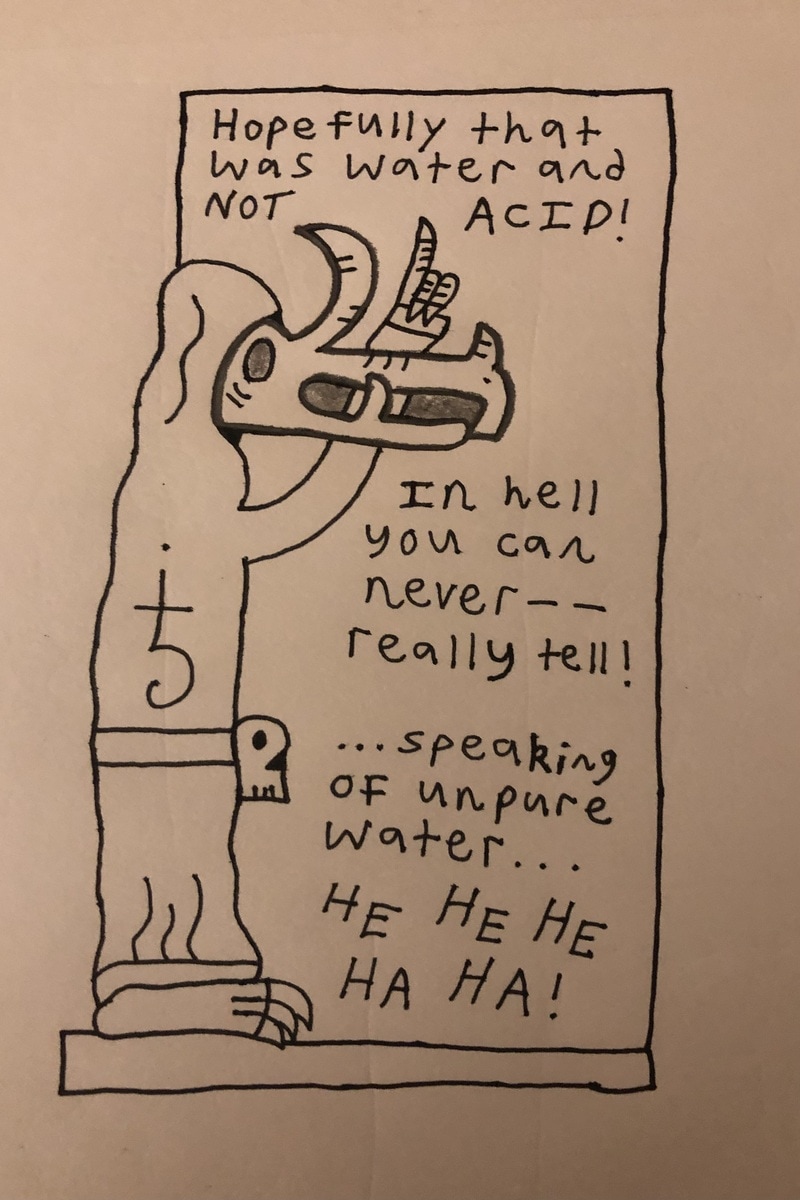 Hopefully that
was water and
NOT ACID!
In hell
you can
never--
really tell!
...speaking
OF unpure
water...
HE HE HE
HA HA!